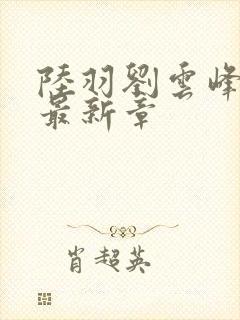 陸羽劉雲峰
最新章
肖超英